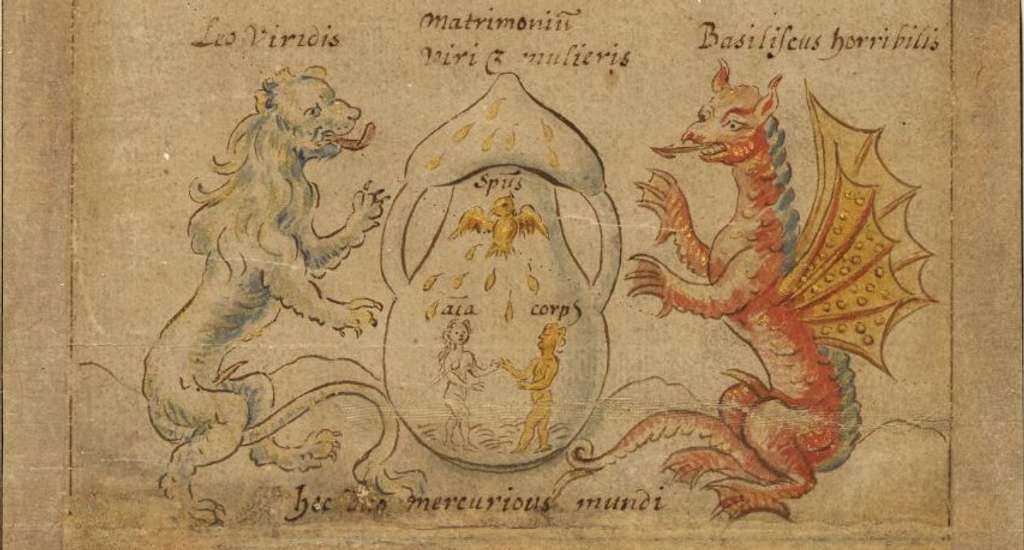 Leo Viridis
Matrimoniū
viri & mulieris
Basiliscus horribilis
Spūs
aīa
corpς
hec mercurious mundi